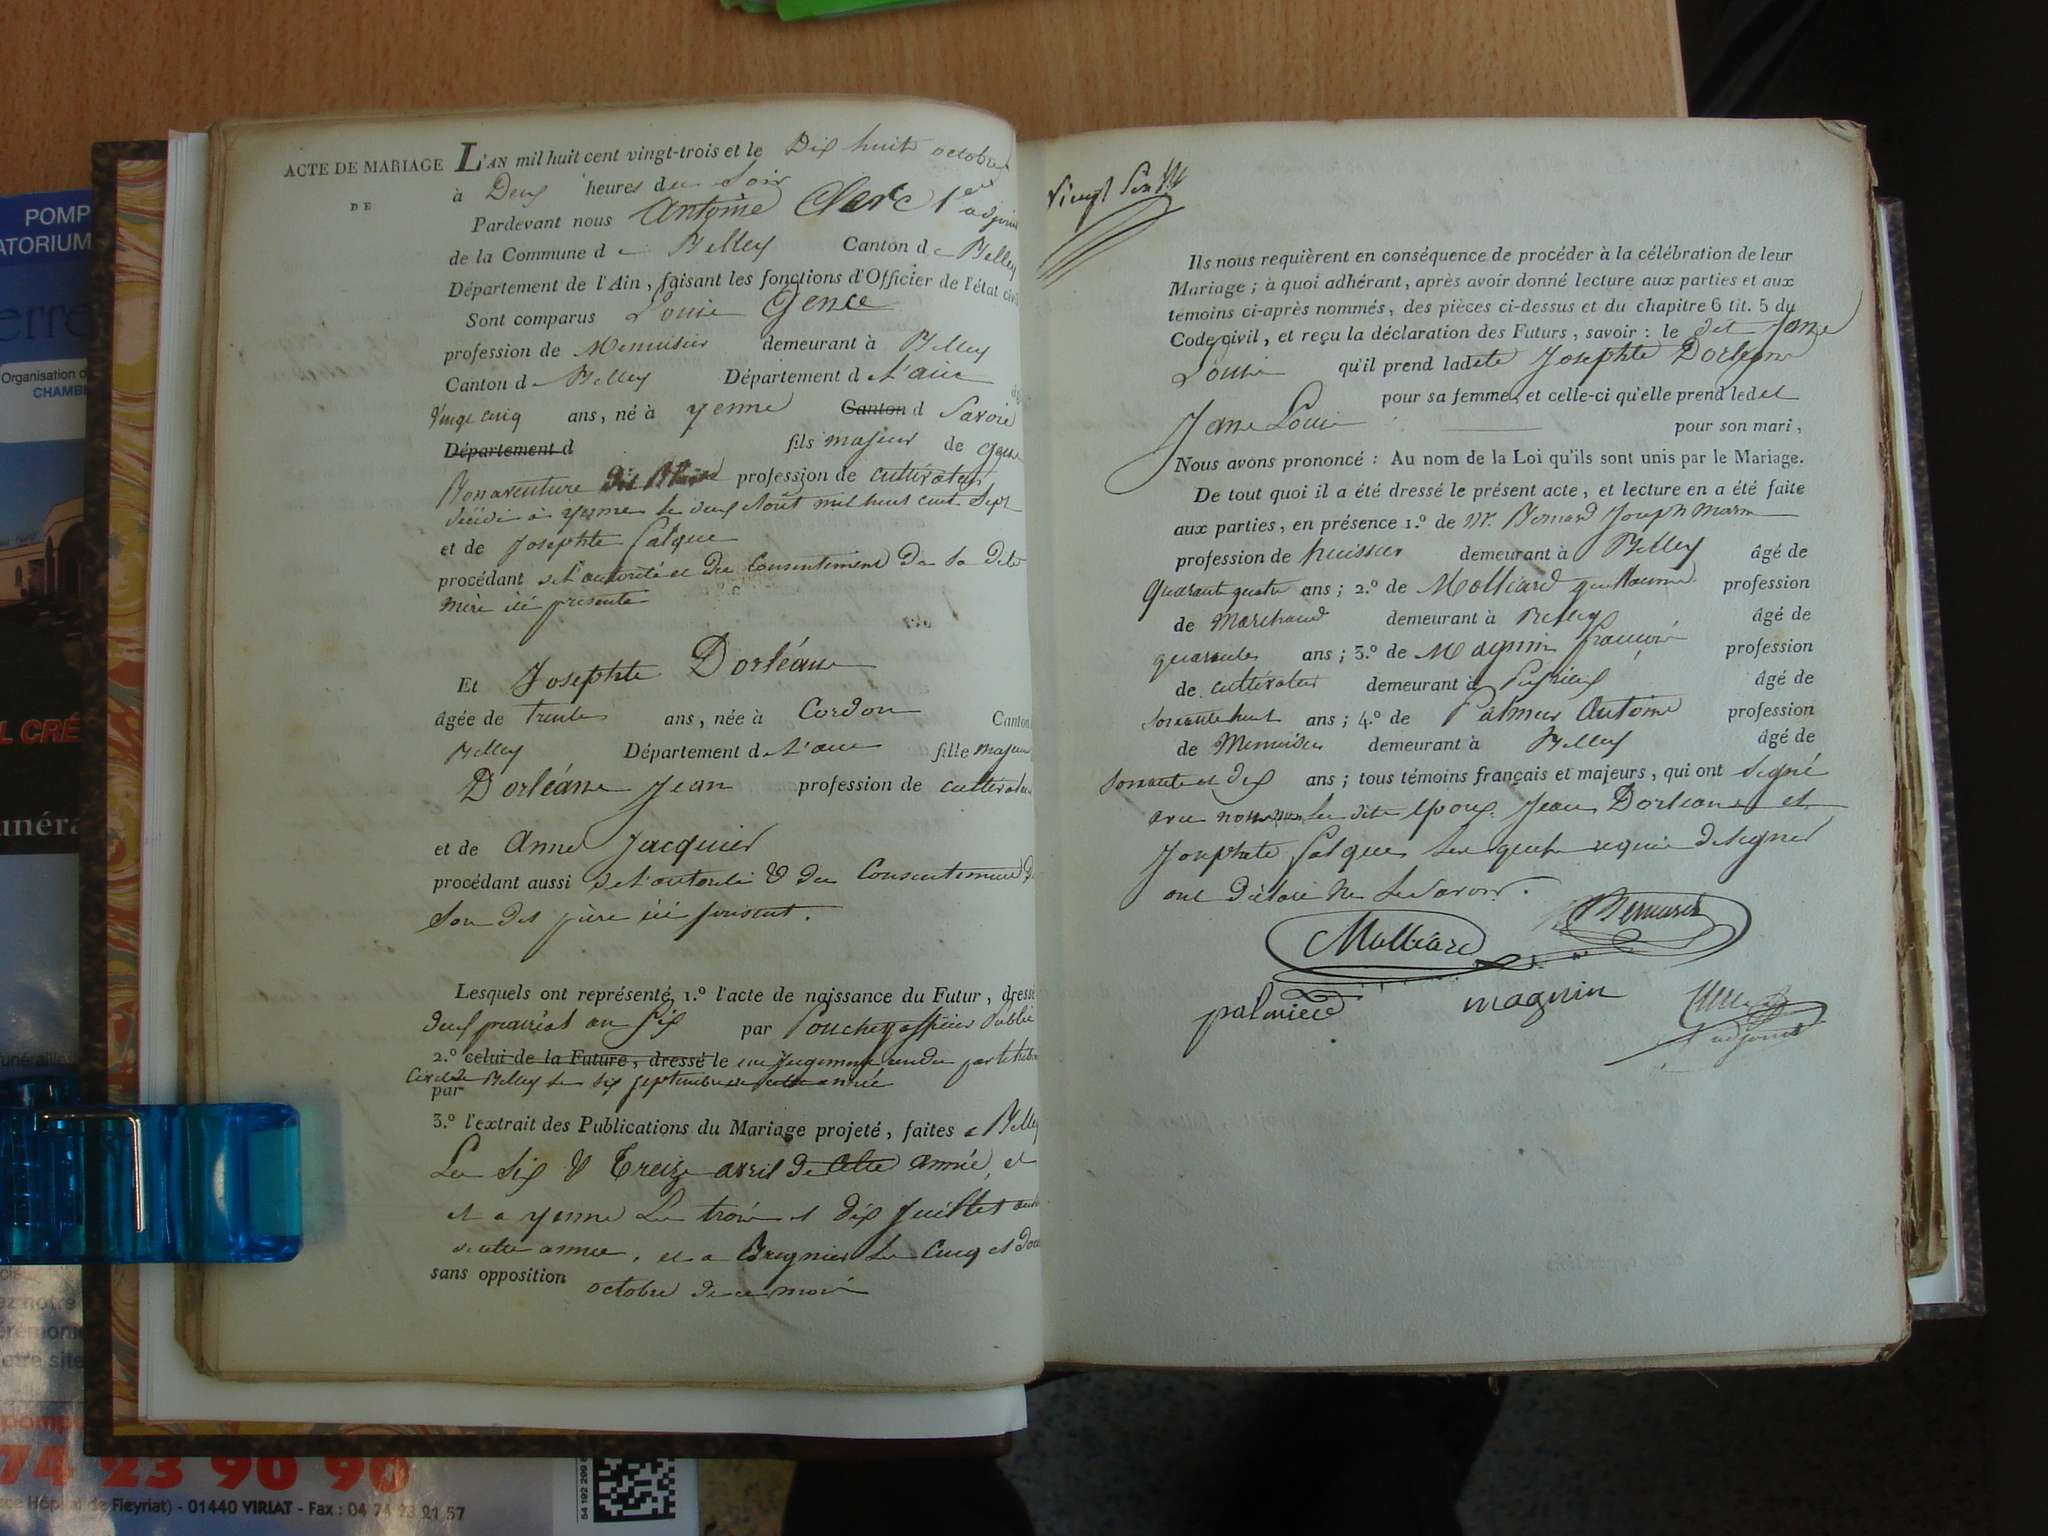 ACTE DE MARIAGE L'AN mil huit cent vingt-trois et le Dix huit octobre
DE
à Deux heures du Soir
Pardevant nous Antoine Clerc 1er adjoint
de la Commune de Belley Canton de Belley
Département de l'Ain, faisant les fonctions d'Officier de l'état civil
Sont comparus Louis Gence
profession de Menuisier demeurant à Belley
Canton de Belley Département de L'ain
Vingt cinq ans, né à yenne Canton d Savoie
Département d fils majeur de Gence
Bonaventure profession de cultivateur
décédé à yenne le deux Aout mil huit cent Sept
et de Josephte Falque
procédant de L'autorité et du Consentement De sa dite
mère ici presente
Et Josephte Dorléans
âgée de trente ans, née à Cordon Canton
Belley Département de L'ain fille majeure
Dorléans Jean profession de cultivateur
et de Anne Jacquier
procédant aussi de L'autorité & du Consentement De
Son dit père ici présent.
Lesquels ont représenté 1.º l'acte de naissance du Futur, dressé
deux prairial an Six par officier Public
2.º celui de la Future, dressé le un Jugement rendu par le tribunal
Civil de Belley Le Six Septembre année
par
3.º l'extrait des Publications du Mariage projeté, faites a Belley
Les Six & Treize avril de Cette année, et
et a yenne Les trois et Dix Juillet
de cette année, et a Bregnier Les Cinq et Douze
sans opposition octobre de ce mois
Vingt Six
Ils nous requièrent en conséquence de procéder à la célébration de leur
Mariage; à quoi adhérant, après avoir donné lecture aux parties et aux
témoins ci-après nommés, des pièces ci-dessus et du chapitre 6 tit. 5 du
Code civil, et reçu la déclaration des Futurs, savoir: le dit Jane
Louis qu'il prend ladite Josephte Dorléans
pour sa femme, et celle-ci qu'elle prend ledit
Jane Louis pour son mari,
Nous avons prononcé: Au nom de la Loi qu'ils sont unis par le Mariage.
De tout quoi il a été dressé le présent acte, et lecture en a été faite
aux parties, en présence 1.º de Mr. Bernard Joseph Marin
profession de huissier demeurant à Belley âgé de
Quarante quatre ans; 2.º de Molliard guillaume profession
de Marchand demeurant à Belley âgé de
quarante ans; 3.º de Magnin francois profession
de cultivateur demeurant à âgé de
Soixante huit ans; 4.º de Palmier Antoine profession
de Menuisier demeurant à Belley âgé de
Soixante et dix ans; tous témoins français et majeurs, qui ont signé
avec nous Les dits Epoux Jean Dorleans et
Josephte Falque Lesquels requis de signer
ont Déclaré Ne Le Savoir.
Molliard Bernard
palmiere magnin
adjoint
POMP
ATORIUM
erre
Organisation o
CHAMBE
L CRÉ
unéra
unéraille
ez notre
érémoni
otre site
74 23 90 90
ce Hôpital de Fleyriat) - 01440 VIRIAT - Fax : 04 74 23 21 57